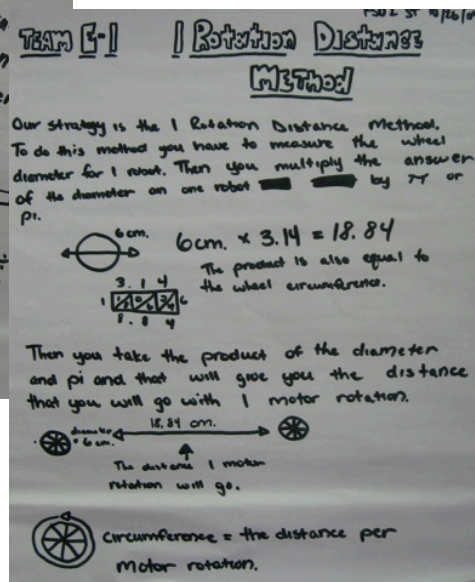 TEAM E-1 1 Rotation Distance
Method
Our strategy is the 1 Rotation Distance Method.
To do this method you have to measure the wheel
diameter for 1 robot. Then you multiply the answer
of the diameter on one robot by π or
pi.
6 cm.
6cm. × 3.14 = 18.84
The product is also equal to
the wheel circumference.
3. 1 4
1 6
8. 8 4
Then you take the product of the diameter
and pi and that will give you the distance
that you will go with 1 motor rotation.
diameter
= 6 cm.
18.84 cm.
The distance 1 motor
rotation will go.
circumference = the distance per
motor rotation.